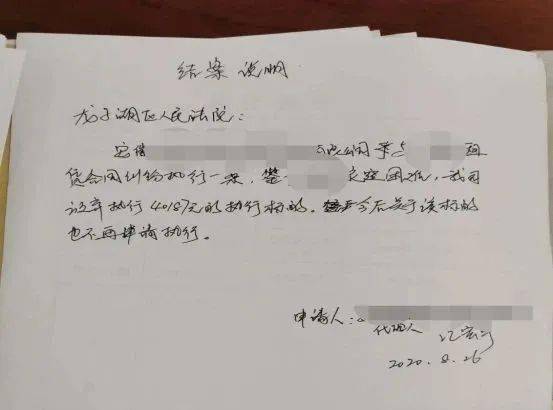 结案说明
龙子湖区人民法院：
安徽 限公司 与 租
赁合同纠纷执行一案，鉴 家庭困难，我司
放弃执行4087元的执行标的。今后关于该标的
也不再申请执行。
申请人：
代理人
2020.8.26